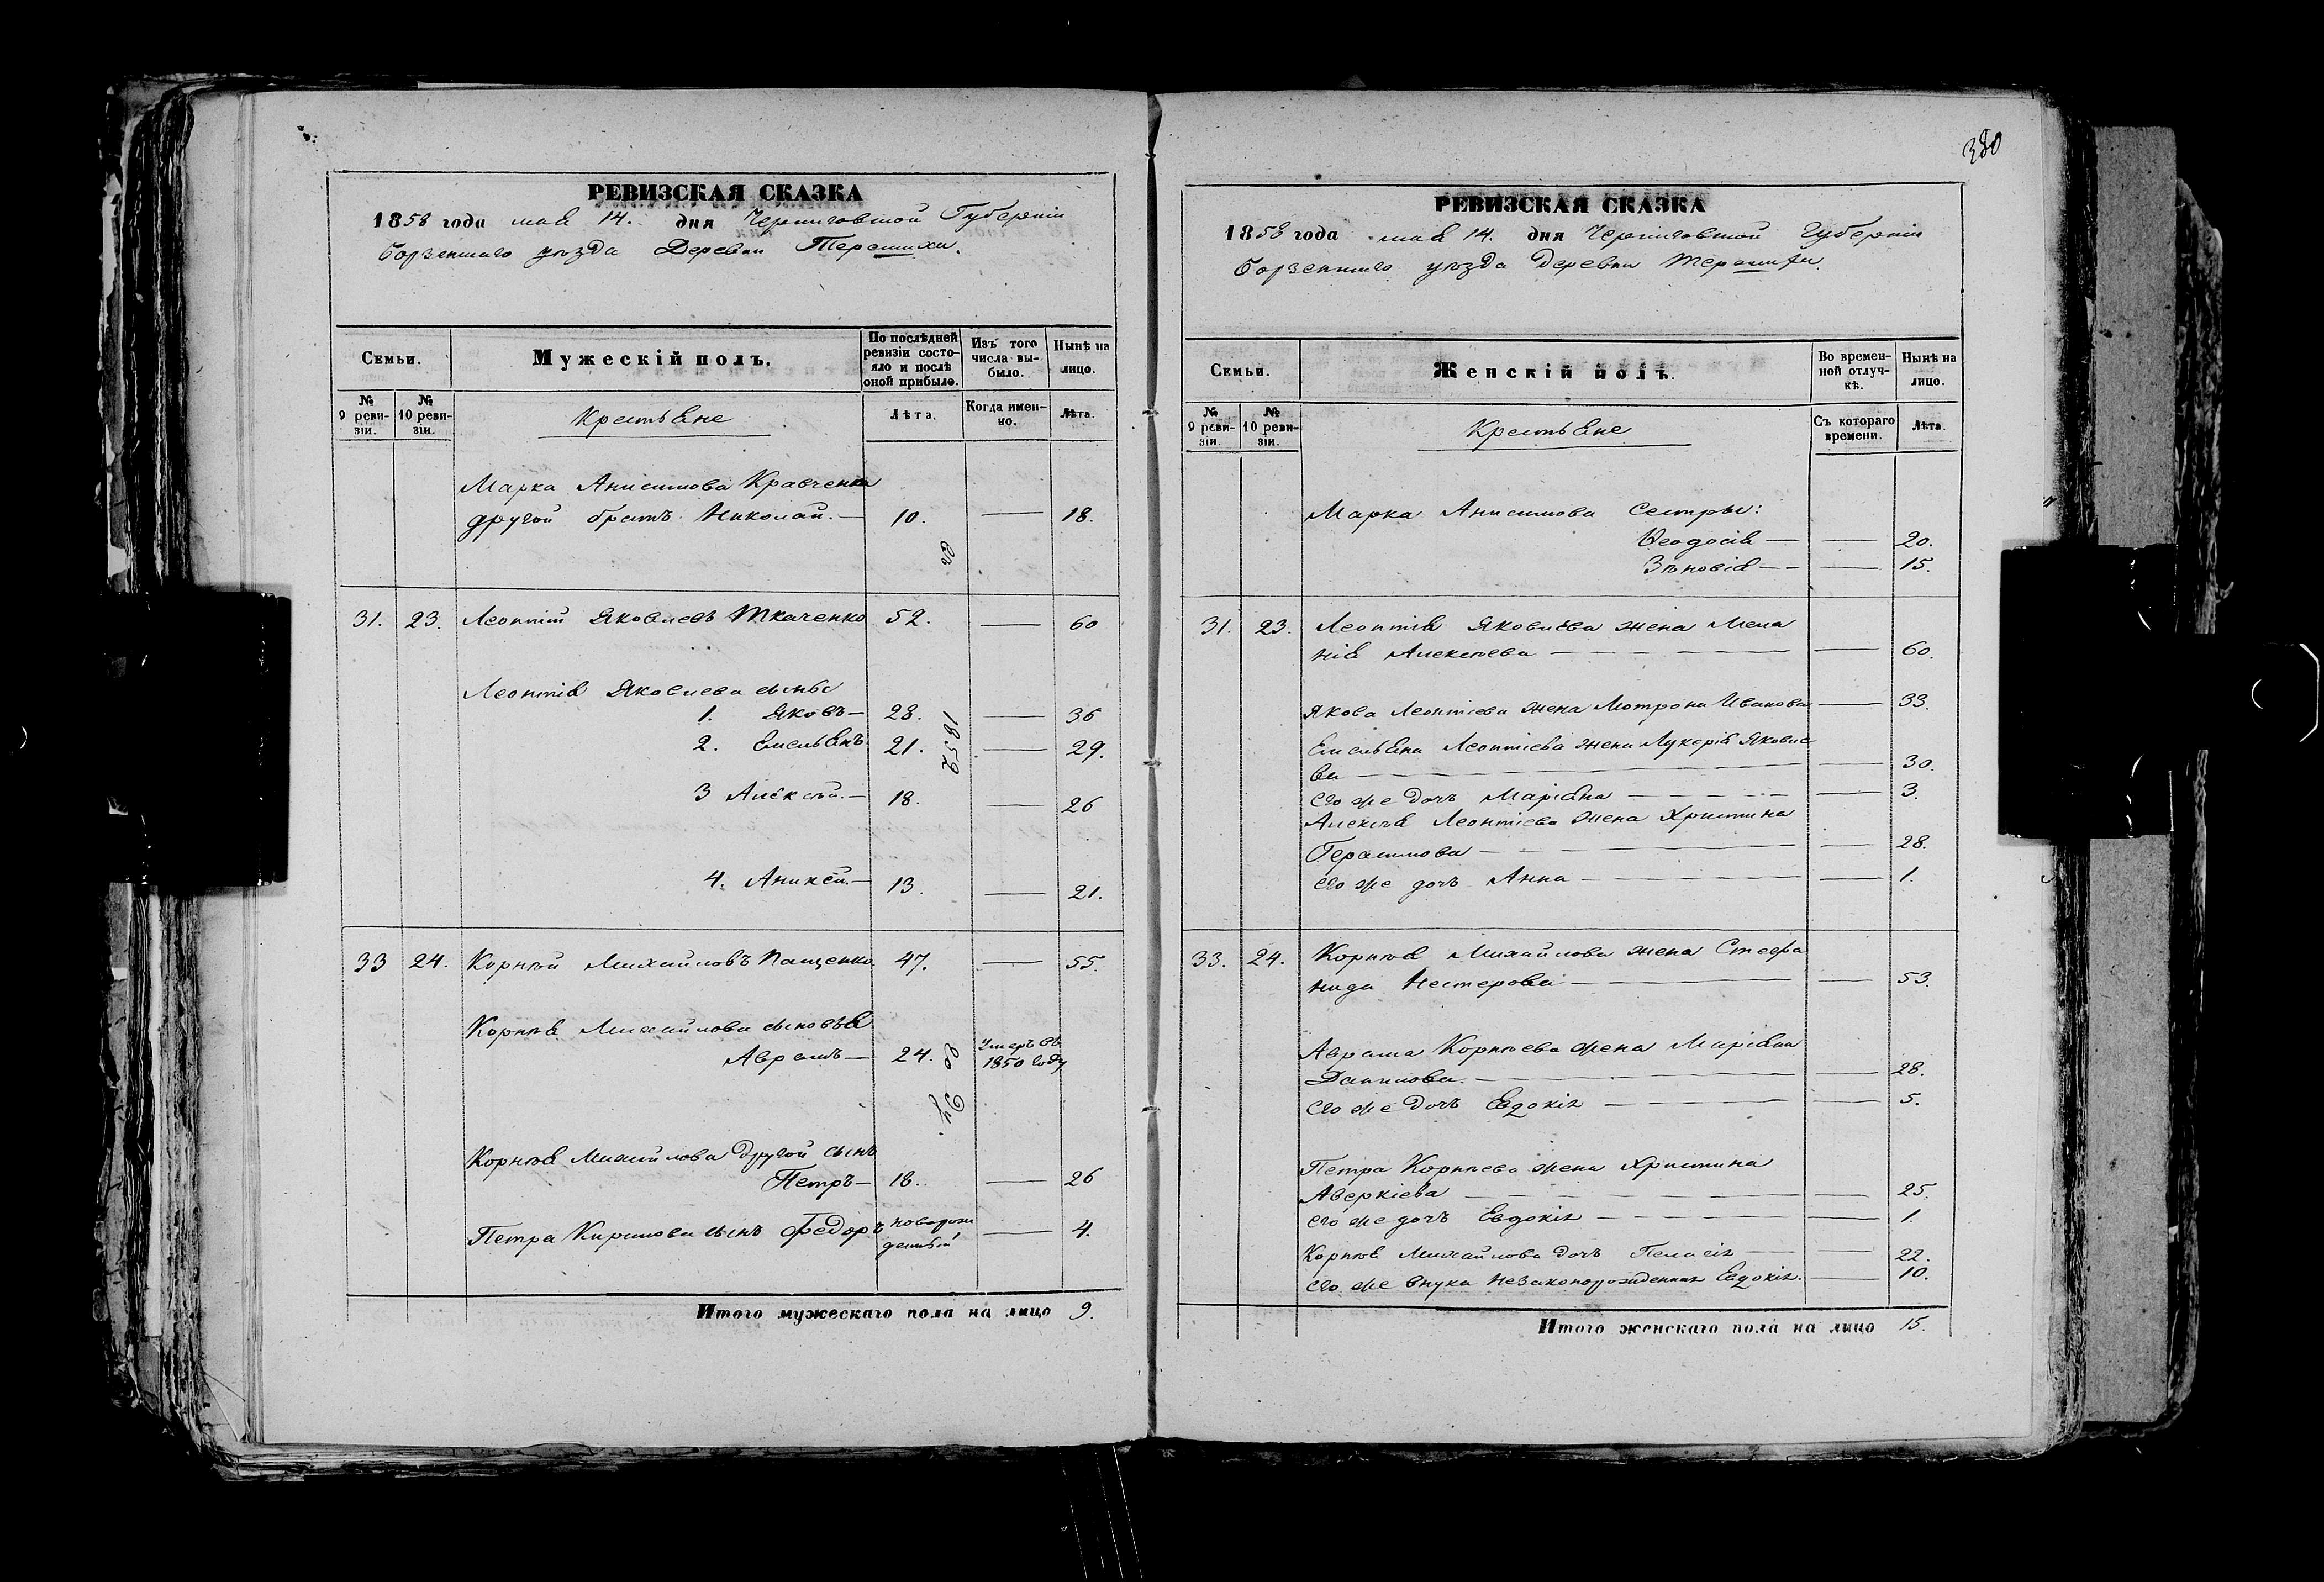 380
РЕВИЗСКАЯ СКАЗКА
1858 года мая 14. дня Черниговской Губерніи
Борзенскаго уѣзда Деревни Терешихи.
Семьи.
Мужескій полъ.
По послѣдней ревизіи состояло и послѣ оной прибыло.
Изъ того числа выбыло.
Нынѣ на лицо.
№ 9 ревизіи.
№ 10 ревизіи.
Крестьяне
Лѣта.
Когда именно.
Лѣта.
Марка Анисимова Кравченка
другой братъ Николай. — 10. — 18.
31. 23. Леонтій Яковлевъ Ткаченко 52. — 60
Леонтія Яковлева сыны
1. Яковъ — 28. — 36
2. Емельянъ 21. — 29.
1852
3 Алексѣй. — 18. — 26
4. Аникѣй. — 13. — 21.
33 24. Корнѣй Михайловъ Пащенко 47. — 55.
Корнѣя Михайлова сыновья
Аврамъ — 24. Умеръ въ 1850 году
Корнѣя Михайлова другой сынъ
Петръ — 18. — 26
Петра Кирилова сынъ Федоръ новорожденный — 4.
Итого мужескаго пола на лицо 9.
РЕВИЗСКАЯ СКАЗКА
1858 года мая 14. дня Черниговской Губерніи
Борзенскаго уѣзда Деревни Терешихи.
Семьи.
Женскій полъ.
Во временной отлучкѣ.
Нынѣ на лицо.
№ 9 ревизіи.
№ 10 ревизіи.
Крестьяне
Съ котораго времени.
Лѣта.
Марка Анисимова Сестры:
Ѳеодосія — — 20.
Зѣновія — — 15.
31. 23. Леонтія Яковлева жена Мела
нія Алексѣева — — 60.
Якова Леонтіева жена Мотрона Иванова — 33.
Емельяна Леонтіева жена Лукерія Яковле
ва — — 30.
Его же дочь Маріяна — — 3.
Алексѣя Леонтіева жена Христина
Герасимова — — 28.
Его же дочь Анна — — 1.
33. 24. Корнѣя Михайлова жена Стефа
нида Нестерова — — 53.
Аврама Корнѣева жена Маріяна
Данилова. — — 28.
Его же дочь Евдокія — — 5.
Петра Корнѣева жена Христина
Аверкіева — — 25.
Его же дочь Евдокія — — 1.
Корнѣя Михайлова дочь Пелагія — — 22.
Его же внука незаконорожденная Евдокія. — 10.
Итого женскаго пола на лицо 15.